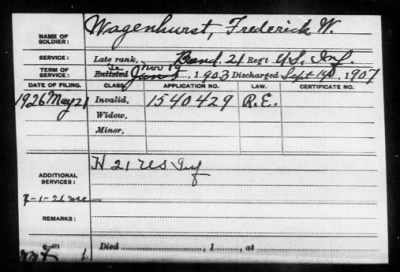 NAME OF SOLDIER: Wagenhurst, Frederick W.
SERVICE: Late rank, Band. 21 Reg't U.S. Inf.
TERM OF SERVICE: Enlisted Nov 19 Jan 1903 Discharged Sept 19, 1907
DATE OF FILING. CLASS. APPLICATION NO. LAW. CERTIFICATE NO.
1926 May 21 Invalid, 1540429 R.E.
Widow,
Minor,
ADDITIONAL SERVICES: H 21 US Inf
7-1-26
REMARKS:
Died , 1 , at